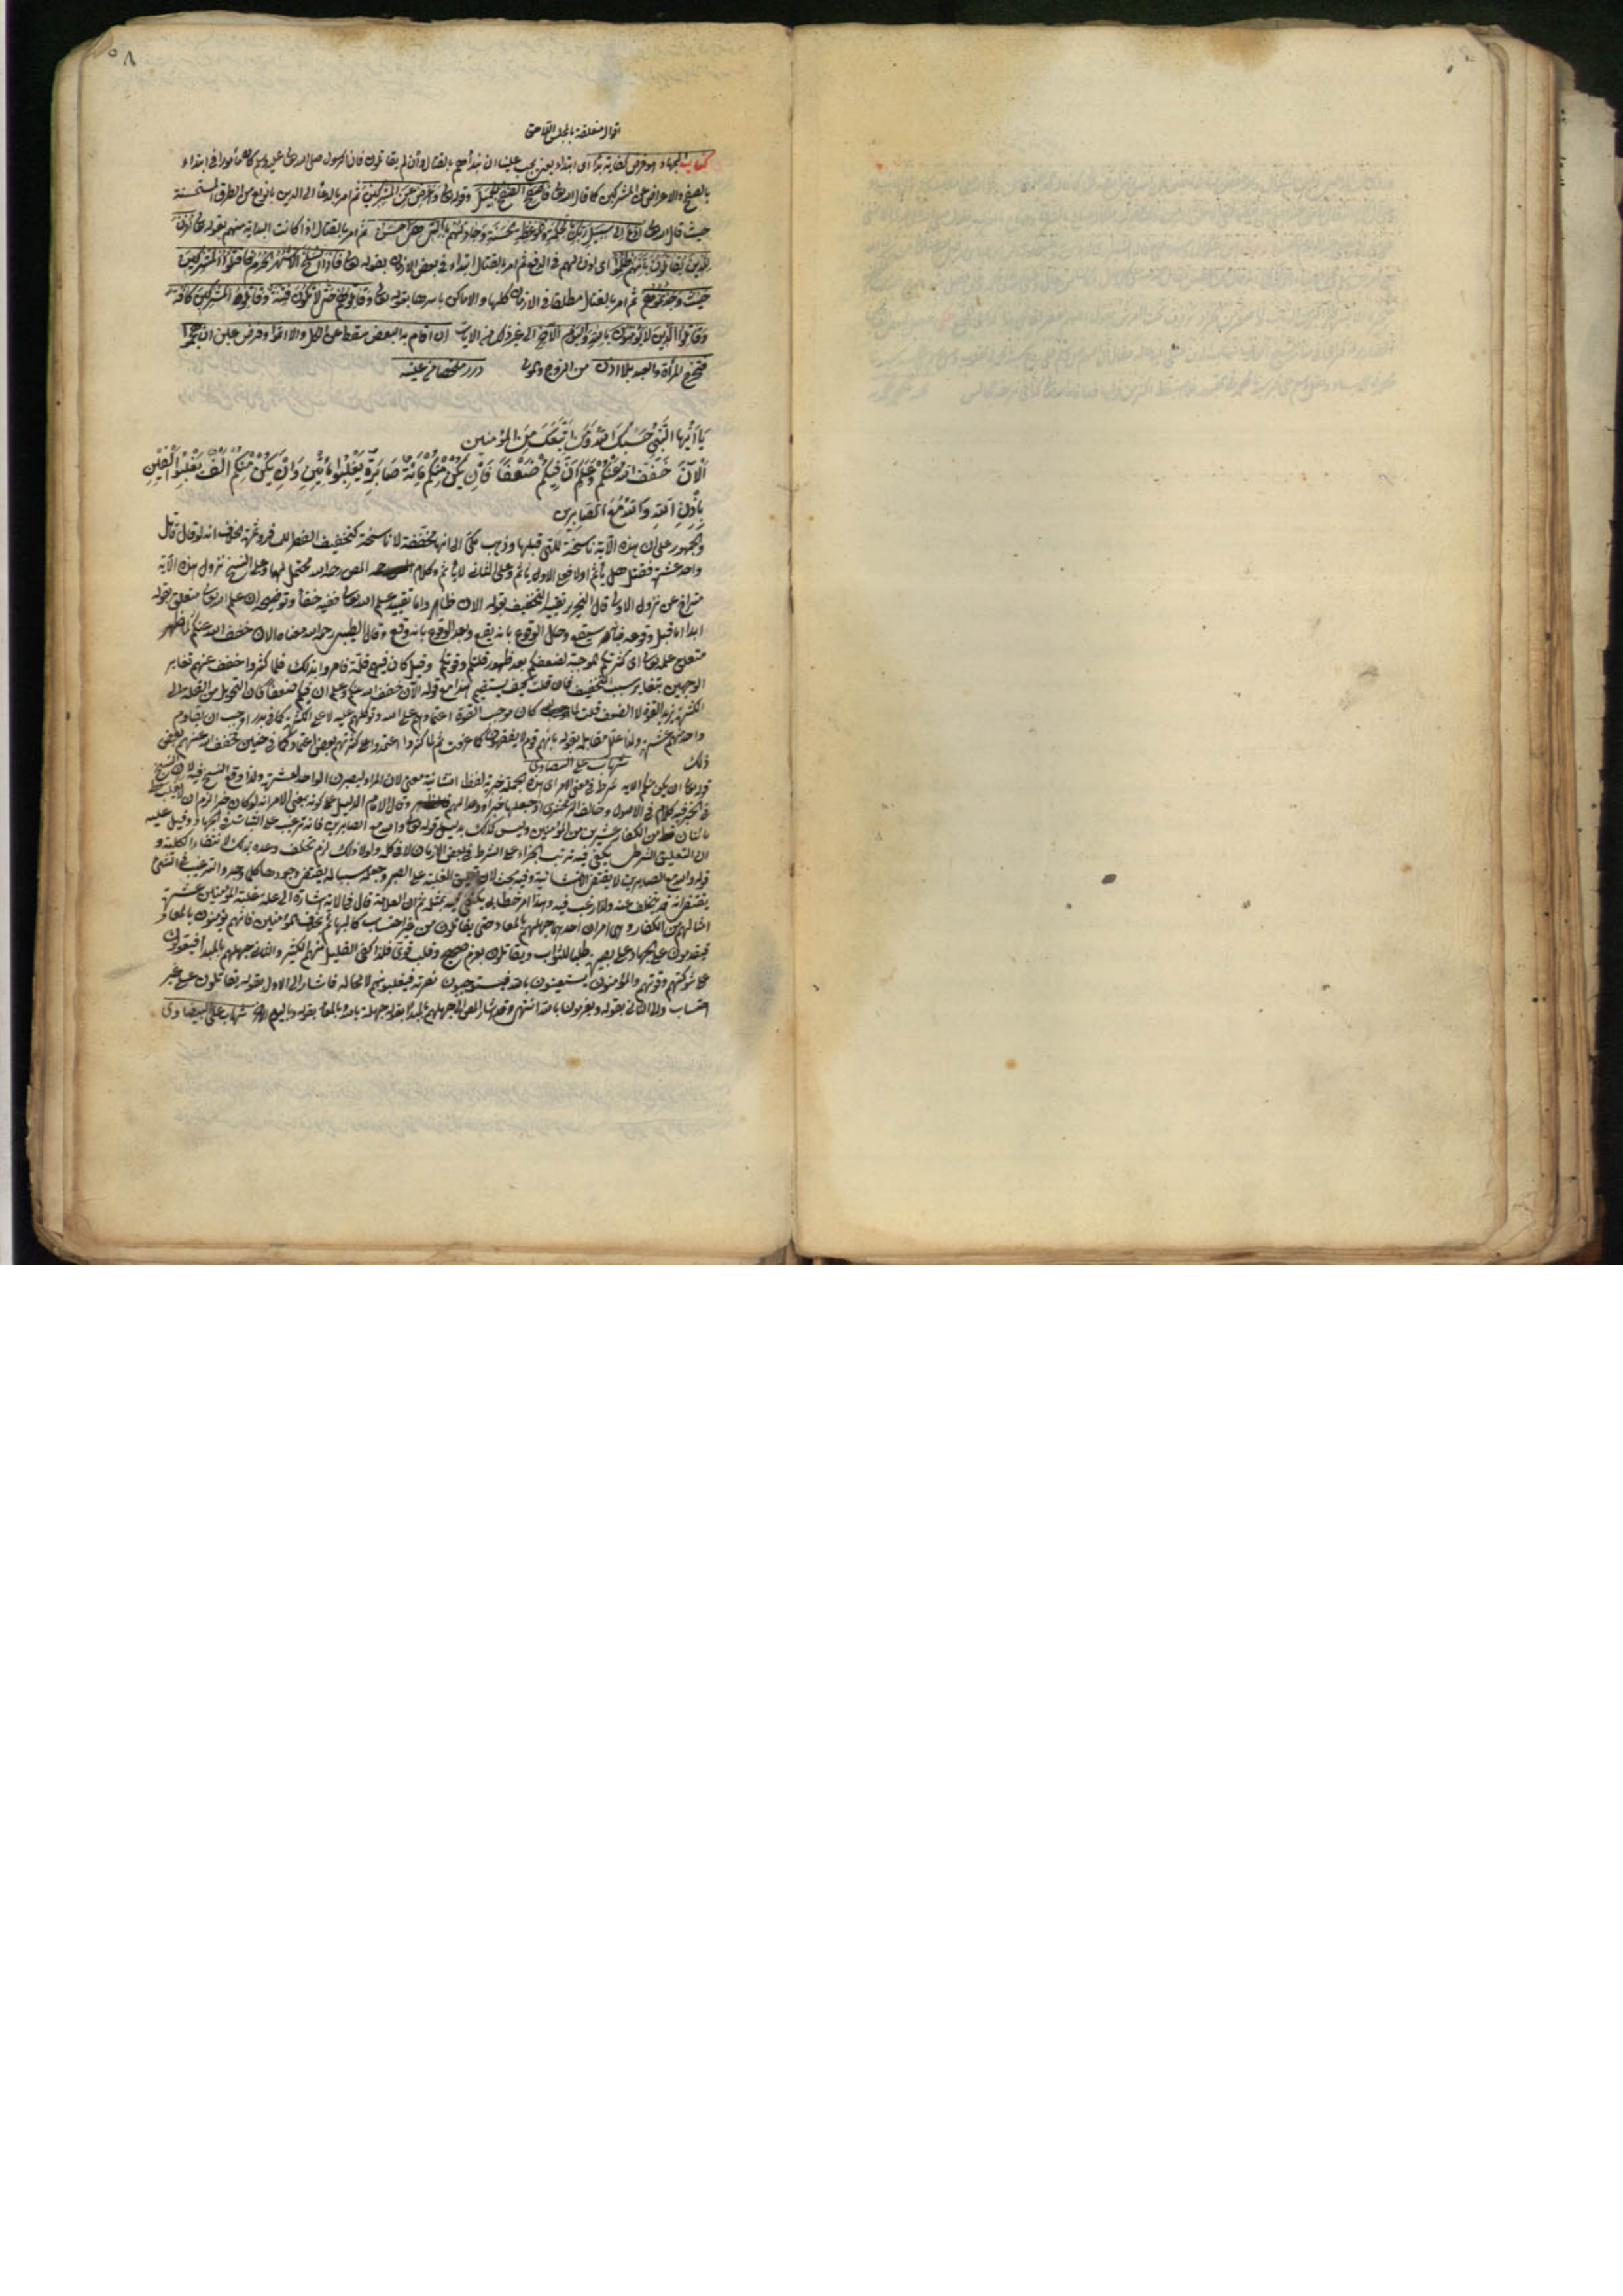 ٥٨
اقوال متعلقة بالمجلس القاضى
كتاب الجهاد هو فرض كفاية بدأ اى ابتداء يعنى يجب علينا ان نبدأهم بالقتال وأن لم يقاتلونا فان الرسول صلى الله تعالى عليه وسلم كان مأمورا فى ابتداء
بالصفح والاعراض عن المشركين كما قال الله تعالى فاصفح الصفح الجميل وقوله تعالى واعرض عن المشركين ثم امر بالدعأ الى الدين بانواع من الطرق المستحسنة
حيث قال الله تعالى ادع الى سبيل ربك بالحكمة والموعظة الحسنة وجادلهم بالتى هى احسن ثم امر بالقتال اذا كانت البداية منهم بقوله تعالى أذن
للذين يقاتلون بانهم ظلموا اى اذن لهم فى الدفع ثم امر بالقتال ابتداء فى بعض الازمان بقوله تعالى فاذا انسلخ الاشهر الحرم فاقتلوا المشركين
حيث وجدتموهم ثم امر بالقتال مطلقا فى الازمان كلها والاماكن باسرها بقوله تعالى وقاتلوهم حتى لا تكون فتنة وقاتلوا المشركين كافة
وقاتلوا الذين لا يؤمنون بالله ولا باليوم الآخر الى غير ذلك من الايات ان اقام به البعض سقط عن الكل والا اثموا وفرض عين ان هجموا
فتخرج المرأة والعبد بلا اذن من الزوج والمولى درر ملخصا من عينه
يا ايها النبى حسبك الله ومن اتبعك من المؤمنين
الآن خفف الله عنكم وعلم ان فيكم ضعفا فان يكن منكم مائة صابرة يغلبوا مأتين وان يكن منكم الف يغلبوا الفين
باذن الله والله مع الصابرين
والجمهور على ان هذه الآية ناسخة للتى قبلها وذهب مكى الى انها مخففة لا ناسخة كتخفيف الفطر للمسافر وثمرة الخلاف انه لو قاتل
واحد عشرة فقتل هل يأثم اولا فعلى الاول يأثم وعلى الثانى لا يأثم وكلام المص رحمه الله محتمل لهما وعلى النسخ نزول هذه الآية
متراخ عن نزول الاولى قال النحرير تقييد التخفيف بقوله الان ظاهر واما تقييد علم الله تعالى ففيه خفأ وتوضيحه ان علم الله تعالى متعلق بقوله
ابدا اما قبل وقوعه فبانه سيقع وحال الوقوع بانه يقع وبعد الوقوع بانه وقع وقال الطيبى رحمه الله معناه الان خفف الله عنكم لما ظهر
متعلق علمه تعالى اى كثرتكم الموجبة لضعفكم بعد ظهور قلتكم وقوتكم وقيل كان فيهم قلة فامروا بذلك فلما كثروا خفف عنهم تغاير
الوجهين بتغاير سبب التخفيف فان قلت كيف يستقيم هذا مع قوله الآن خفف الله عنكم وعلم ان فيكم ضعفا فان التحويل من القلة الى
الكثرة يزيد القوة لا الضعف قلت كان موجب القوة اعتمادهم على الله وتوكلهم عليه لا على الكثرة كما فى بدر اوجب ان يقاوم
واحد منهم عشرة ولذا علل مقابله بقوله بانهم قوم لا يفقهون كما عرفت ثم لما كثروا اعتمدوا على كثرتهم بعض اعتماد كما فى حنين خفف الله عنهم بعض
ذلك شهاب على البيضاوى
قوله تعالى ان يكن منكم الايه شرط فى معنى الامر اى هذه الجملة خبرية لفظا انشائية معنى لان المراد ليصبرن الواحد لعشرة ولذا وقع النسخ فيه لان النسخ
فى الخبر فيه كلام فى الاصول وخالف الزمخشرى اذ جعلها خبرا ووعدا لهم وقال الامام الدليل على كونه بمعنى الامر انه لو كان خبرا لزم ان لا يغلب قط
مأتان من الكفار عشرين من المؤمنين وليس كذلك بدليل قوله تعالى والله مع الصابرين فانه ترغيب على الثبات فى الجهاد وقيل عليه
ان التعليق الشرطى يكفى فيه ترتب الجزاء على الشرط فى بعض الازمان لا فى كله ولولا ذلك لزم تخلف وعده بذلك لانتفاء الكلية و
قوله والله مع الصابرين لا يقتضى الانشائية وفيه بحث لان تعليق الغلبة على الصبر وجعله سببا له يقتضى وجودها كلما وجد والترغيب فى الشئ
يقتضى انه قد يتخلف عنه ولذا رغب فيه وهذا امر خطابى يكتفى فيه بمثله ثم ان العلامة قال فى الاية اشارة الى علة غلبة المؤمنين عشرة
امثالهم من الكفار وهى امران احدهما جهلهم بالمعاد حتى يقاتلون من غير احتساب كالبهائم بخلاف المؤمنين فانهم يؤمنون بالمعاد
فيقدمون على الجهاد على بصيرة طلبا للثواب ويقاتلون بعزم صحيح وقلب قوى فلذا كفى القليل منهم الكثير والثانى جهلهم بالمبدأ فيعولون
على شوكتهم وقوتهم والمؤمنون يستعينون بالله فيستوجبون نصرته فيغلبونهم لا محالة فاشار الى الاول بقوله يقاتلون على غير
احتساب والى الثانى بقوله ويعزمون بالله انتهى وقد اشار المص الى جهلهم بالمبدأ بقوله جهلة بالله والمعاد بقوله وباليوم الاخر شهاب على البيضاوى